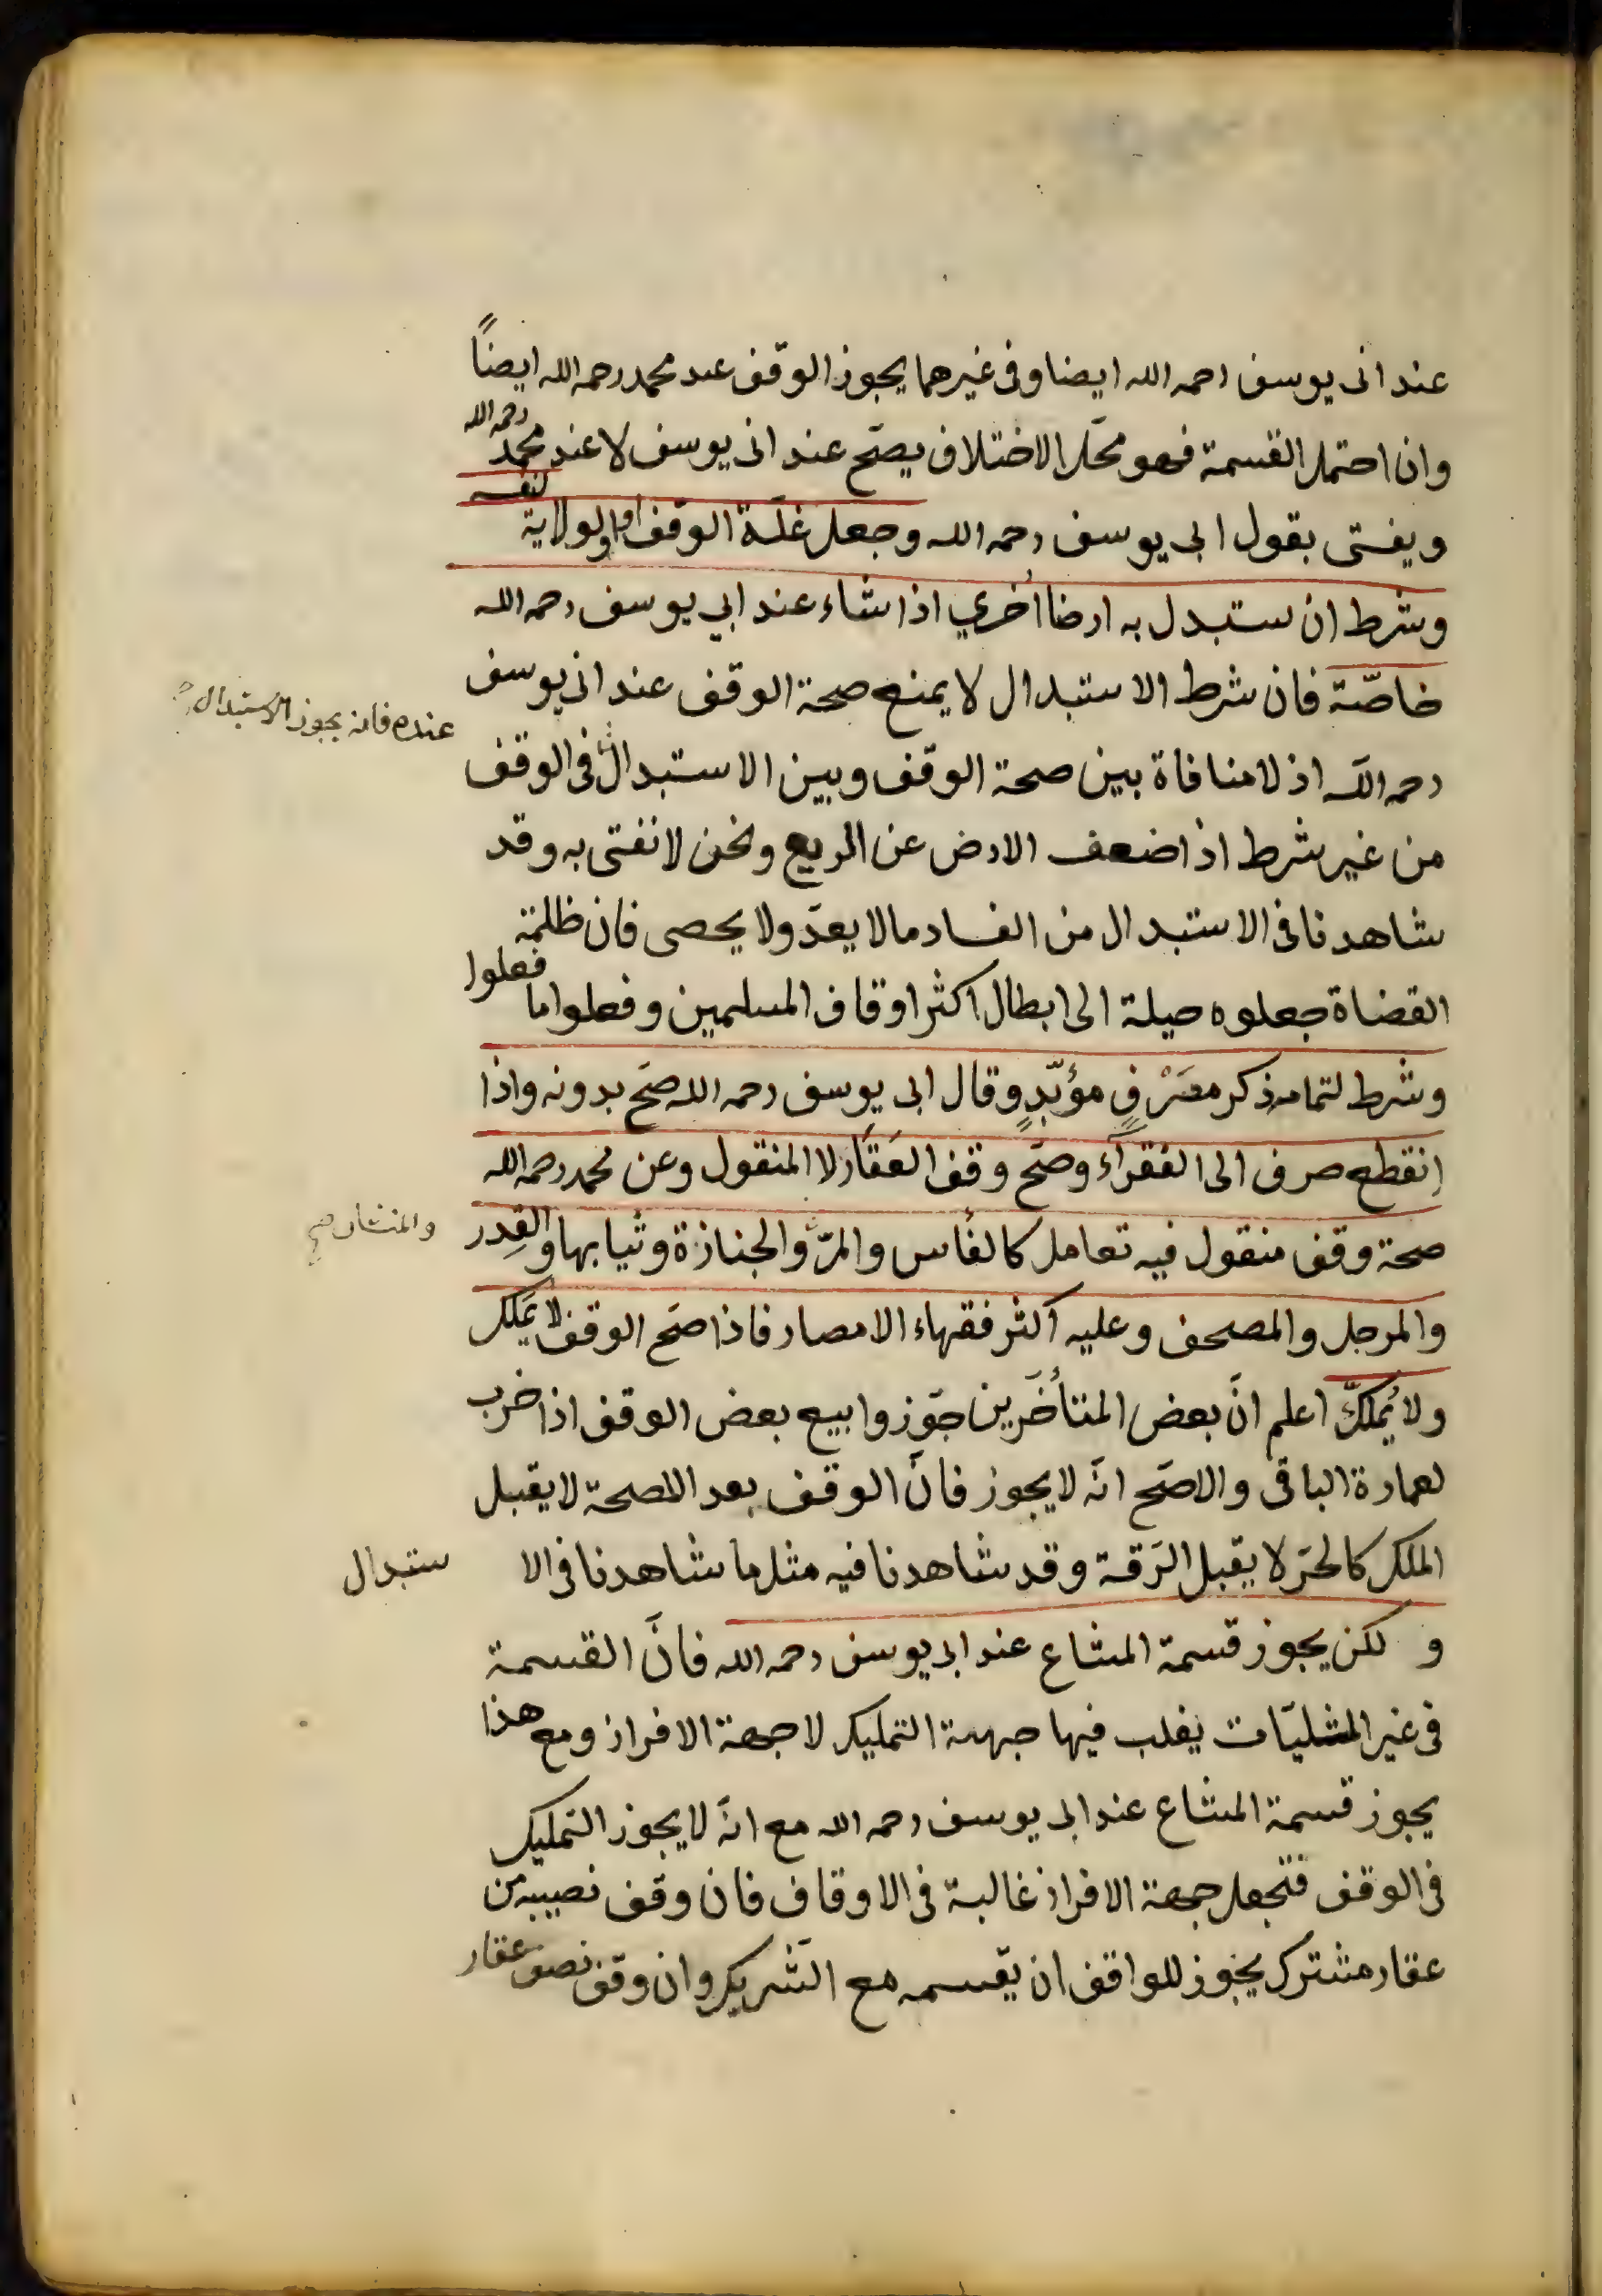 عند ابى يوسف رحمه الله ايضا وفى غيرهما يجوز الوقف عند محمد رحمه الله ايضاً
وان احتمل القسمة فهو محل الاختلاف يصحّ عند ابى يوسف لا عند محمد رحمه الله
ويفتى بقول ابى يوسف رحمه الله وجعل غلّة الوقف او الولاية لنفسه
وشرط ان ستبدل به ارضا اُخري اذا شاء عند ابي يوسف رحمه الله
خاصّة فان شرط الاستبدال لا يمنع صحة الوقف عند ابى يوسف
رحمه الله اذ لا منافاة بين صحة الوقف وبين الاستبدال فى الوقف
عنده فانه يجوز الاستبدال
من غير شرط اذا ضعف الارض عن الريع ونحن لا نفتى به وقد
شاهدنا فى الاستبدال من الفساد ما لا يعدّ ولا يحصى فان ظلمة
القضاة جعلوه حيلة الى ابطال اكثر اوقاف المسلمين وفعلوا ما فعلوا
وشرط لتمامه ذكر مصَرْفٍ مؤبّدٍ وقال ابى يوسف رحمه الله صحّ بدونه واذا
اِنقطع صرف الى الفقرآء وصحّ وقف العَقَار لا المنقول وعن محمد رحمه الله
صحة وقف منقول فيه تعامل كالفأس والمرّ والجنازة وثيابها والقِدر
والمنشار صح
والمرجل والمصحف وعليه اكثر فقهاء الامصار فاذا صحّ الوقف لا يَملك
ولا يُملكّ اعلم انّ بعض المتأخّرين جوّزوا بيع بعض الوقف اذا خرب
لعمارة الباقى والاصحّ انّه لا يجوز فانّ الوقف بعد الصحة لا يقبل
الملك كالحرّ لا يقبل الرّقة وقد شاهدنا فيه مثل ما شاهدنا فى الا ستبدال
و لكن يجوز قسمة المشاع عند ابى يوسف رحمه الله فانّ القسمة
فى غير المثليّات يغلب فيها جهة التمليك لا جهة الافراز ومع هذا
يجوز قسمة المشاع عند ابى يوسف رحمه الله مع انّه لا يجوز التمليك
فى الوقف فتجعل جهة الافراز غالبة فى الاوقاف فان وقف نصيبه من
عقار مشترك يجوز للواقف ان يقسمه مع الشّريك وان وقف نصف عقار